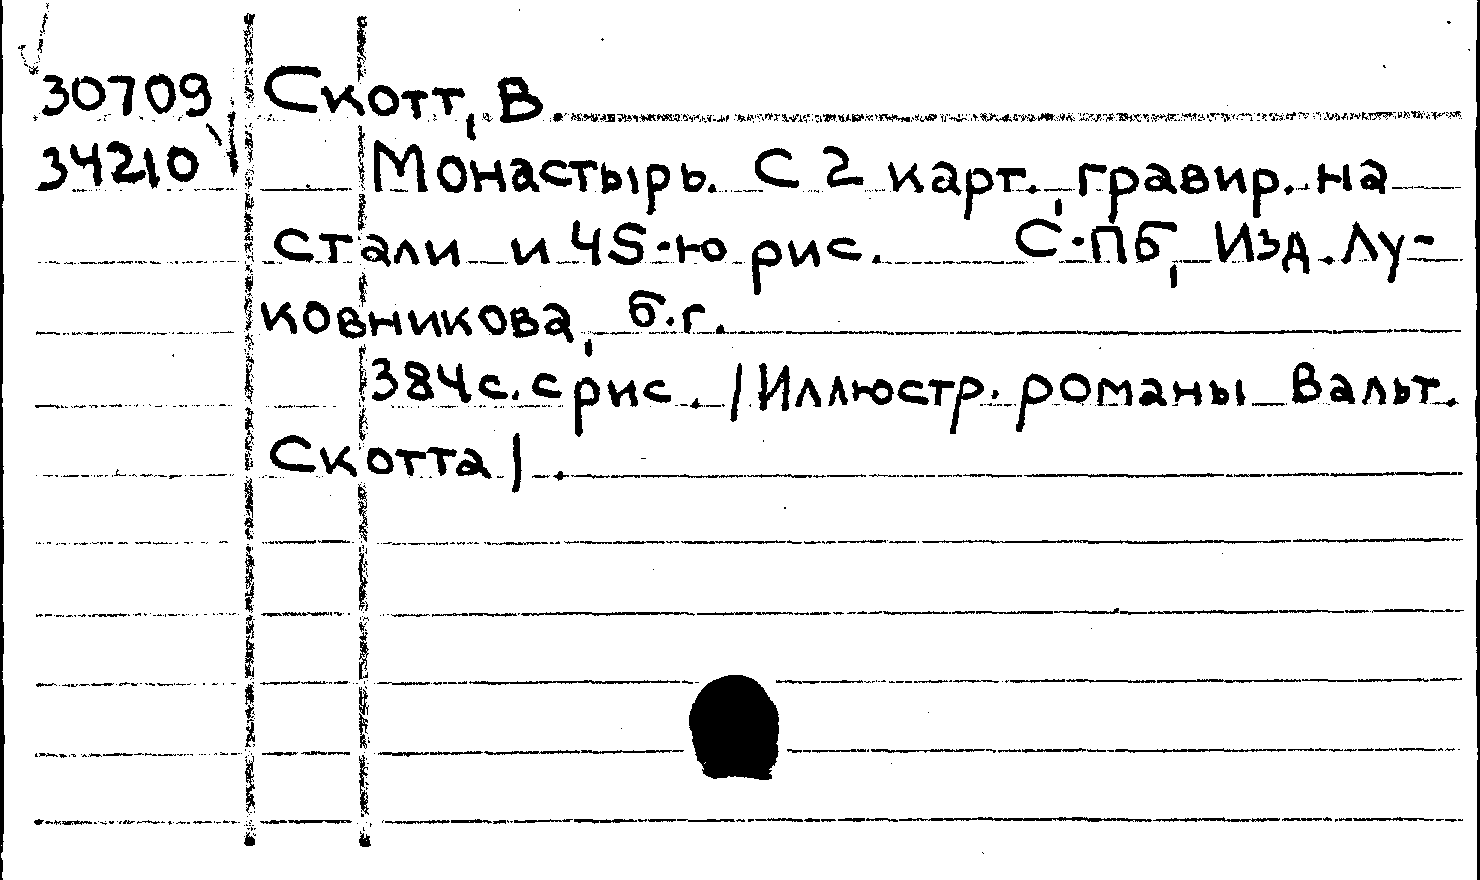 30709 Скотт, В.
34210 Монастырь. С 2 карт., гравир. на
стали и 45-ю рис. С-Пб, Изд. Лу-
ковникова, б.г.
384 с. с рис. /Иллюстр. романы Вальт.
Скотта/.